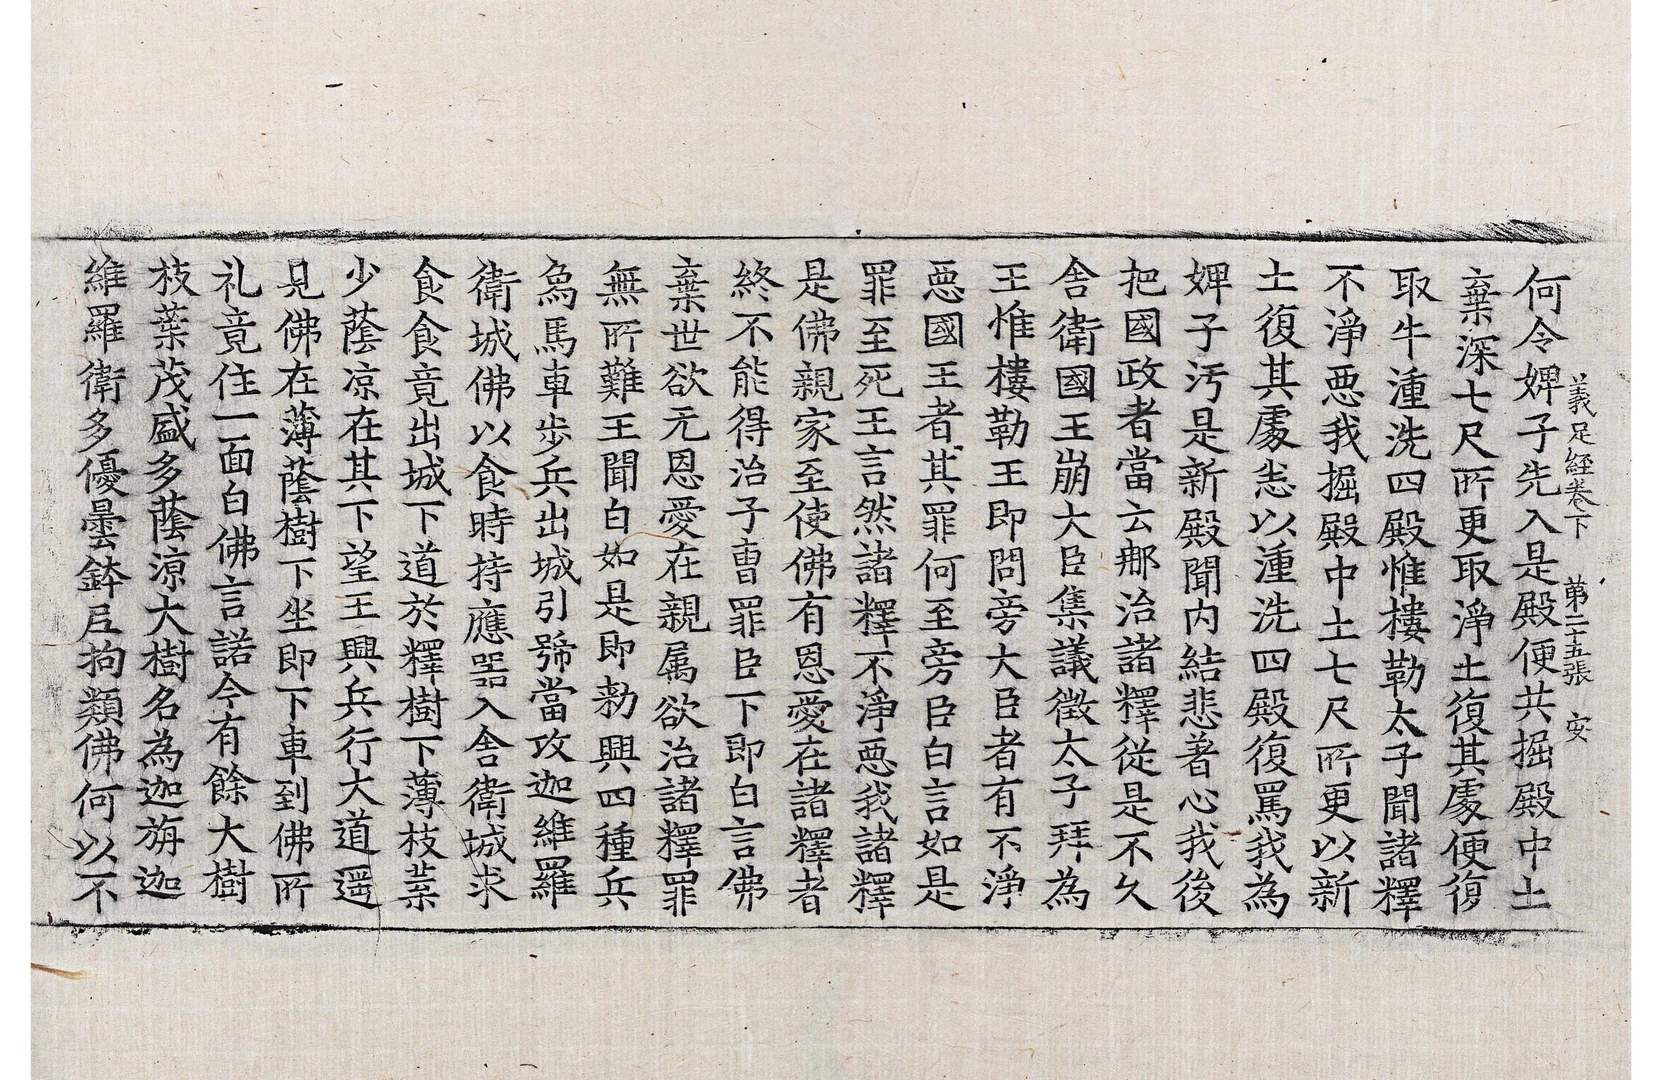 義足經卷下　第二十五張　安
何令婢子先入是殿便共掘殿中土
棄深七尺所更取淨土復其處便復
取牛湩洗四殿惟樓勒太子聞諸釋
不淨惡我掘殿中土七尺所更以新
土復其處恚以湩洗四殿復罵我為
婢子汚是新殿聞內結悲著心我後
把國政者當云那治諸釋從是不久
舍衛國王崩大臣集議徵太子拜為
王惟樓勒王即問旁大臣者有不淨
惡國王者其罪何至旁臣白言如是
罪至死王言然諸釋不淨惡我諸釋
是佛親家至使佛有恩愛在諸釋者
終不能得治子曹罪臣下即白言佛
棄世欲无恩愛在親属欲治諸釋罪
無所難王聞白如是即勑興四種兵
為馬車步兵出城引號當攻迦維羅
衛城佛以食時持應器入舍衛城求
食食竟出城下道於釋樹下薄枝葉
少蔭凉在其下望王興兵行大道遥
見佛在薄蔭樹下坐即下車到佛所
礼竟住一面白佛言諾今有餘大樹
枝葉茂盛多蔭涼大樹名為迦旃迦
維羅衛多優曇鉢𡰱拘類佛何以不